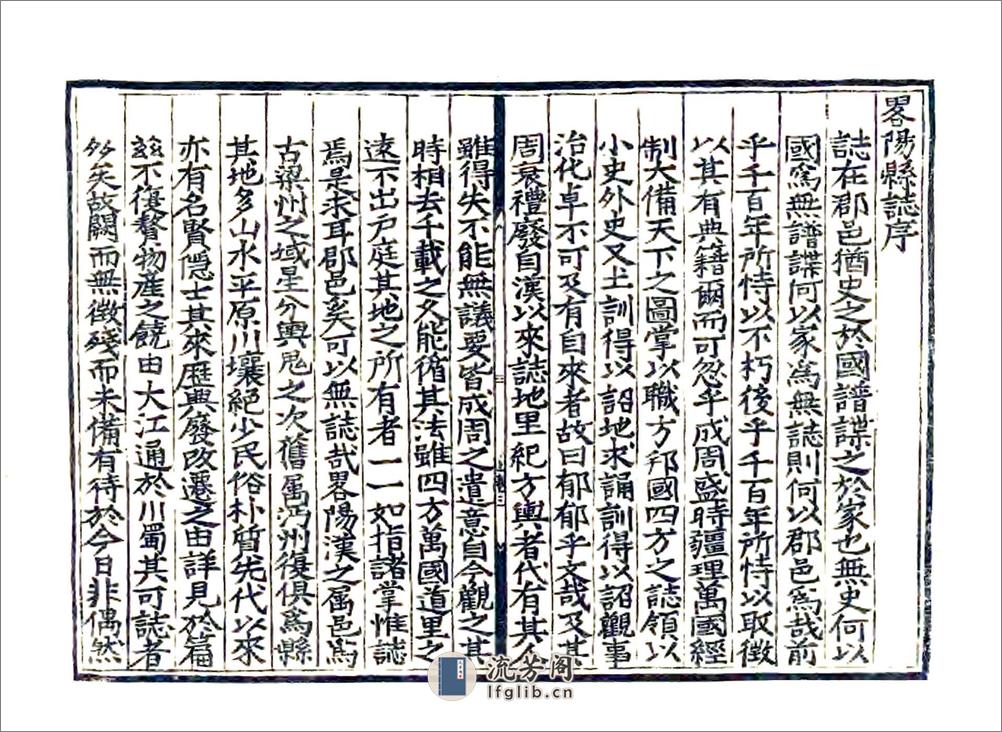 畧陽縣誌序
誌在郡邑猶史之於國譜諜之於家也無史何以
國爲無譜諜何以家爲無誌則何以郡邑爲哉前
乎千百年所恃以不朽後乎千百年所恃以取徴
以其有典籍爾而可忽乎成周盛時疆理萬國經
制大備天下之圖掌以職方邦國四方之誌領以
小史外史又土訓得以詔地求誦訓得以詔觀事
治化卓不可及有自來者故曰郁郁乎文哉及其
周衰禮廢自漢以來誌地里紀方輿者代有其人
雖得失不能無議要皆成周之遺意自今觀之其
時相去千載之久能循其法雖四方萬國道里之
遠不出戸庭其地之所有者一一如指諸掌惟誌
焉是求耳郡邑奚可以無誌哉畧陽漢之属邑爲
古梁州之域星分輿鬼之次舊属沔州復俱爲縣
其地多山水平原川壤絕少民俗朴質先代以來
亦有名賢隱士其來歷興廢改遷之由詳見於篇
兹不復贅物産之饒由大江通於川蜀其可誌者
多矣故闕而無徴殘而未備有待於今日非偶然
三
流芳阁
lfglib.cn